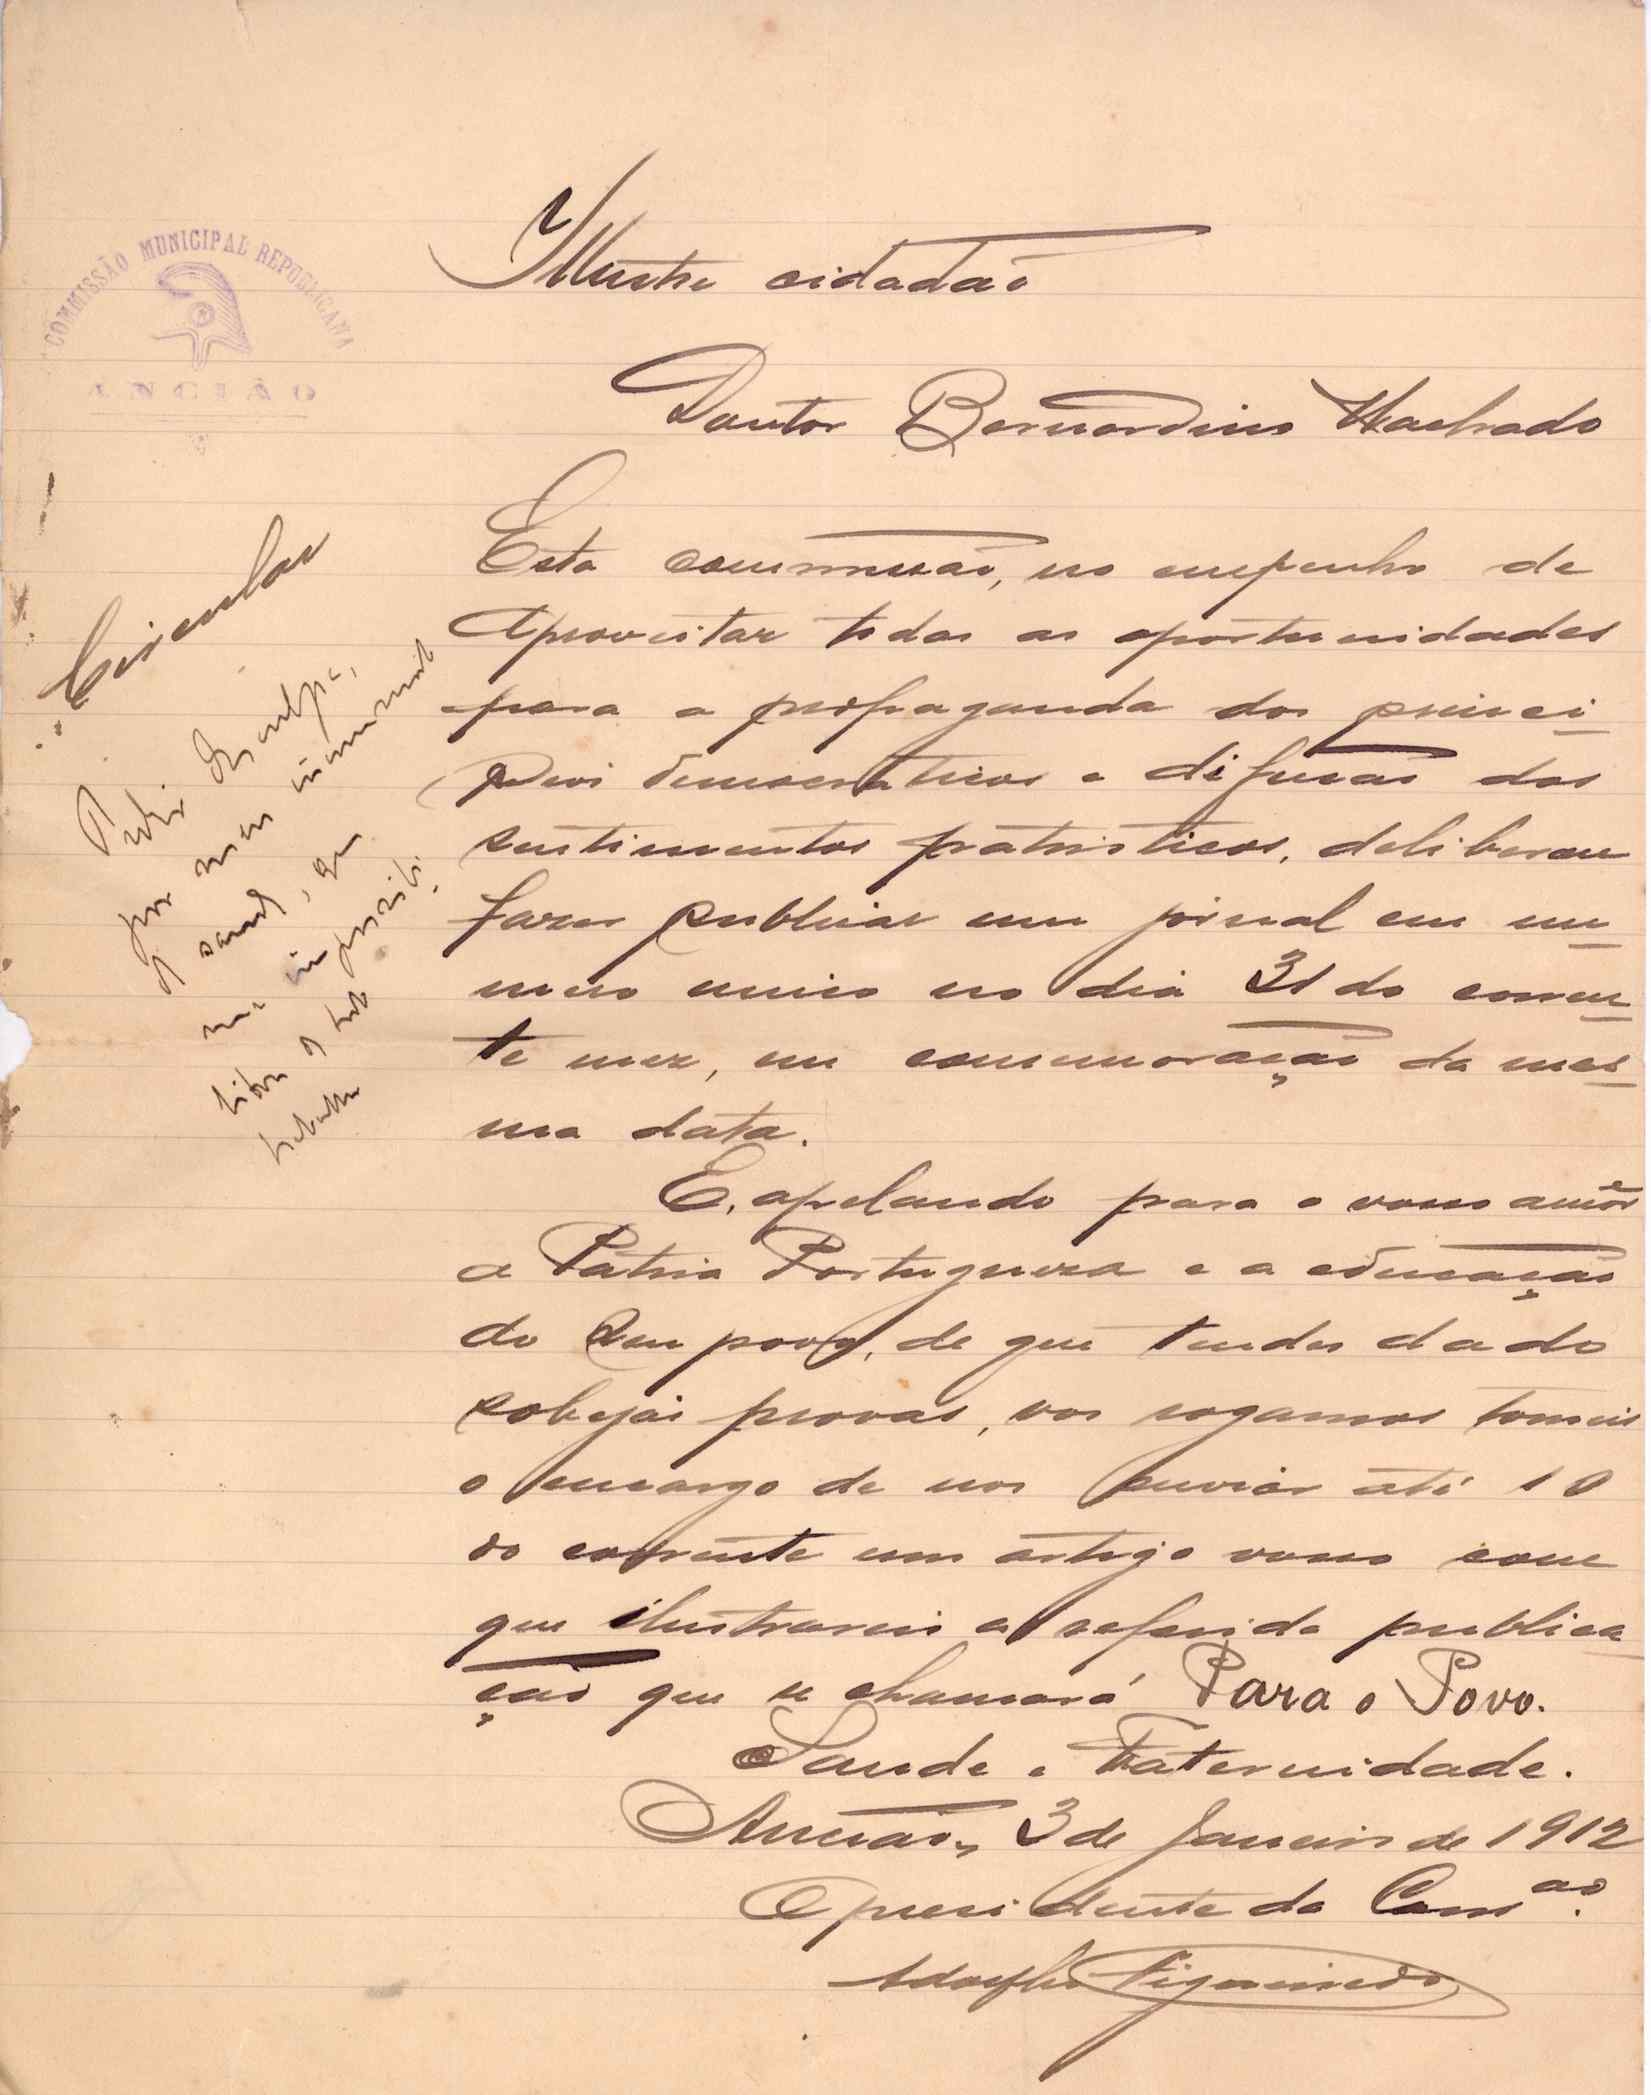 COMMISSÃO MUNICIPAL REPUBLICANA
ANCIÃO
Illustre cidadão
Doutor Bernardino Machado
Circular
Pedir desculpa,
por meu incommodo
de saude, que
me impossibi-
lita de todo
trabalho
Esta commissão, no empenho de
aproveitar todas as oportunidades
para a propaganda dos princi-
pios democraticos e difusão dos
sentimentos patrioticos, deliberou
fazer publicar um jornal em nu-
mero unico no dia 31 do corren-
te mez, em comemoração da mes-
ma data.
E, apelando para o vosso amôr
a Patria Portugueza e a educação
do seu povo, de que tendes dado
sobejas provas, vos rogamos tomeis
o encargo de nos enviar até 10
do corrente um artigo vosso com
que ilustrareis a referida publica-
ção que se chamará Para o Povo.
Saude e Fraternidade.
Ancião, 3 de Janeiro de 1912
O presidente da Comsão.
Adolpho Figueiredo